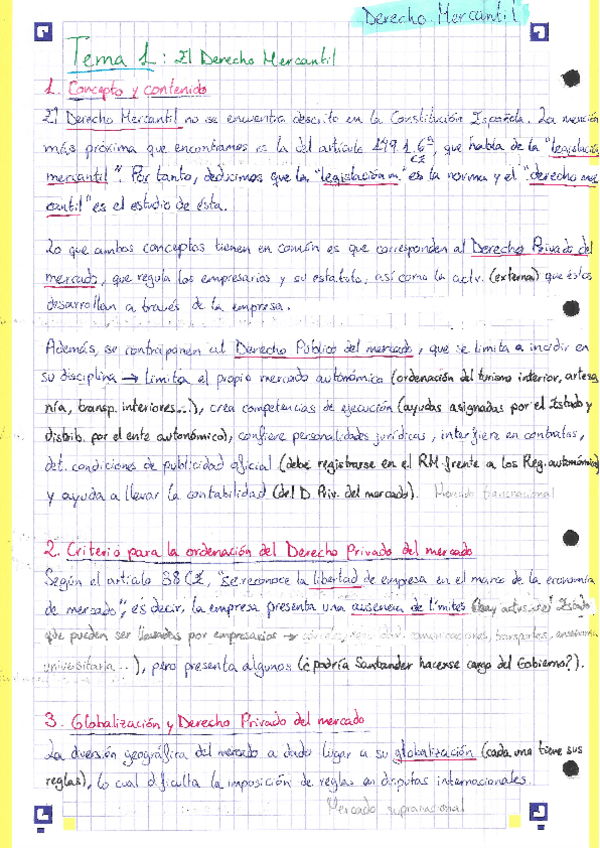 Derecho Mercantil
Tema 1: El Derecho Mercantil
1. Concepto y contenido
El Derecho Mercantil no se encuentra descrito en la Constitución Española. La mención
más próxima que encontramos es la del artículo 149.1.6ª CE, que habla de la "legislación
mercantil". Por tanto, deducimos que la "legislación m." es la norma y el "derecho mer
cantil" es el estudio de ésta.
Lo que ambos conceptos tienen en común es que corresponden al Derecho Privado del
mercado, que regula los empresarios y su estatuto, así como la actv. (externa) que éstos
desarrollan a través de la empresa.
Además, se contraponen al Derecho Público del mercado, que se limita a incidir en
su disciplina → limita el propio mercado autonómico (ordenación del turismo interior, artesa
nía, transp. interiores...), crea competencias de ejecución (ayudas asignadas por el Estado y
distrib. por el ente autonómico), confiere personalidades jurídicas, interfiere en contratos,
det. condiciones de publicidad oficial (debe registrarse en el RM frente a los Reg. autonómico)
y ayuda a llevar la contabilidad (del D. Priv. del mercado). Mercado transnacional
2. Criterio para la ordenación del Derecho Privado del mercado
Según el artículo 38 CE, "se reconoce la libertad de empresa en el marco de la economía
de mercado", es decir, la empresa presenta una ausencia de límites (hay Estado
que pueden ser llevadas por empresarios → comunicaciones, transportes, enseñanza
universitaria...), pero presenta algunos (¿podría Santander hacerse cargo del Gobierno?).
3. Globalización y Derecho Privado del mercado
La diversión geográfica del mercado a dado lugar a su globalización (cada una tiene sus
reglas), lo cual dificulta la imposición de reglas en disputas internacionales.
Mercado supranacional